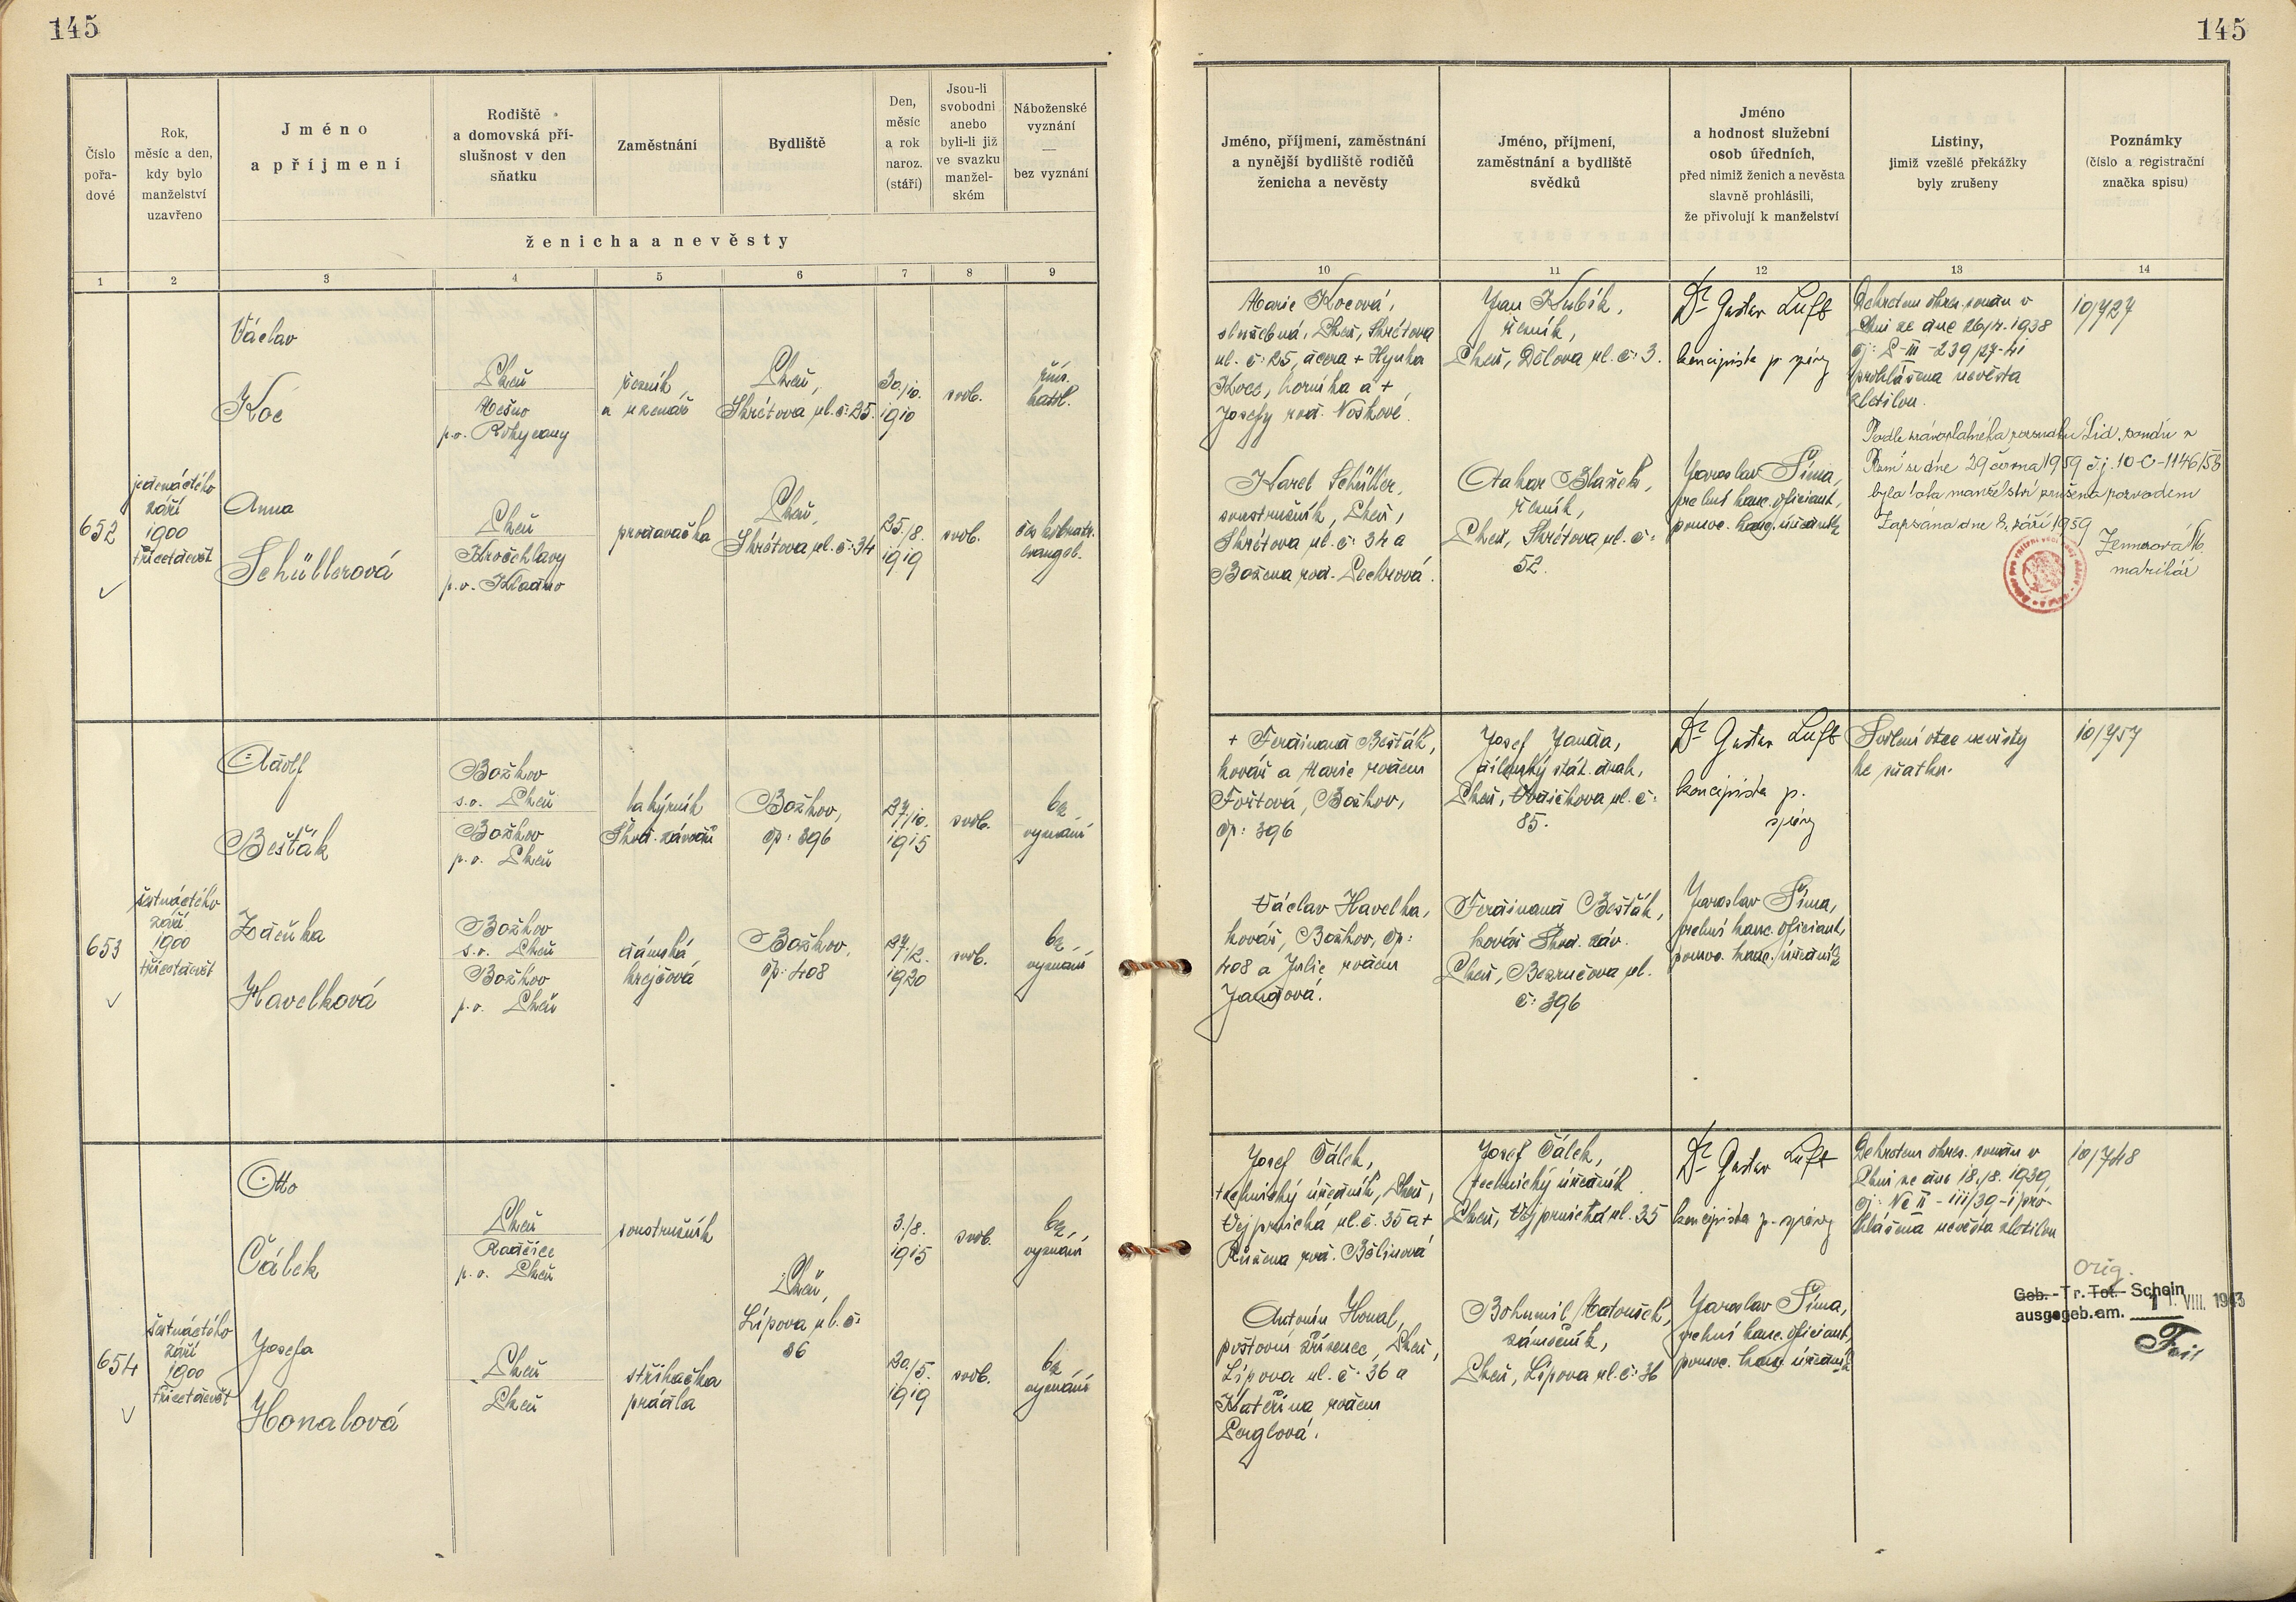 145
145
Číslo
pořa-
dové
Rok,
měsíc a den,
kdy bylo
manželství
uzavřeno
Jméno
a příjmení
Rodiště
a domovská pří-
slušnost v den
sňatku
Zaměstnání
Bydliště
Den,
měsíc
a rok
naroz.
(stáří)
Jsou-li
svobodni
anebo
byli-li již
ve svazku
manžel-
ském
Náboženské
vyznání
—
bez vyznání
ženicha a nevěsty
Jméno, příjmení, zaměstnání
a nynější bydliště rodičů
ženicha a nevěsty
Jméno, příjmení,
zaměstnání a bydliště
svědků
Jméno
a hodnost služební
osob úředních,
před nimiž ženich a nevěsta
slavně prohlásili,
že přivolují k manželství
Listiny,
jimiž vzešlé překážky
byly zrušeny
Poznámky
(číslo a registrační
značka spisu)
1 2 3 4 5 6 7 8 9
10 11 12 13 14
652
jedenáctého
září
1900
třicetdevět
Václav
Koc
Plzeň
Mešno
p.o. Rokycany
řezník
a uzenář
Plzeň,
Skrétova ul. č: 25.
30./10.
1910
svob.
řím.
katol.
Anna
Schüllerová
Plzeň
Kročehlavy
p.o. Kladno
prodavačka
Plzeň,
Skrétova ul. č: 34
25./8.
1919
svob.
čes. bratr.
evangel.
Marie Kocová,
služebná, Plzeň, Skrétova
ul. č: 25, dcera + Hynka
Koce, horníka a +
Josefy roz. Noskové.
Karel Schüller,
soustružník, Plzeň,
Skrétova ul. č: 34 a
Božena roz. Lochrová.
Jan Kubík,
řezník,
Plzeň, Dělova ul. č: 3.
Otakar Blažek,
řezník,
Plzeň, Skrétova ul. č:
52.
Dr Gustav Luft
koncipista p. správy
Jaroslav Šíma,
vrchní kanc. oficiant,
pomoc. kanc. úředník
Dekretem okres. soudu v
Plzni ze dne 26/4. 1938
čj: P-III-239/27-41
prohlášena nevěsta
zletilou.
Podle pravoplatného rozsudku Lid. soudu v
Plzni ze dne 29 června 1959 č.j. 10-C-1146/58
bylo toto manželství zrušeno rozvodem
Zapsáno dne 8. září 1959
Zemerová M.
matrikář
10/727
653
šestnáctého
září
1900
třicetdevět
Adolf
Bešťák
Božkov
s.o. Plzeň
Božkov
p.o. Plzeň
lakýrník
Škod. závodů
Božkov,
čp: 396
27./10.
1915
svob.
bez
vyznání
Zdeňka
Havelková
Božkov
s.o. Plzeň
Božkov
p.o. Plzeň
dámská
krejčová
Božkov,
čp: 408
27./2.
1920
svob.
bez
vyznání
+ Ferdinand Bešťák,
kovář a Marie rozen
Foštová, Božkov,
čp: 396
Václav Havelka,
kovář, Božkov, čp:
408 a Julie rozen
Jandová.
Josef Janda,
dílenský stát. drah,
Plzeň, Vodičkova ul. č:
85.
Ferdinand Bešťák,
kovář Škod. záv.
Plzeň, Bezručova ul.
č: 396
Dr Gustav Luft
koncipista p.
správy
Jaroslav Šíma,
vrchní kanc. oficiant,
pomoc. kanc. úředník
Svolení otce nevěsty
ke sňatku.
10/757
654
šestnáctého
září
1900
třicetdevět
Otto
Čálek
Plzeň
Radčice
p.o. Plzeň
soustružník
3./8.
1915
svob.
bez
vyznání
Plzeň,
Lípova ul. č:
36
Josefa
Honalová
Plzeň
Plzeň
střihačka
prádla
20./5.
1919
svob.
bez
vyznání
Josef Čálek,
technický úředník, Plzeň,
Vejprnická ul. č. 35 a +
Růžena roz. Bělinová
Antonín Honal,
poštovní zřízenec, Plzeň,
Lípova ul. č: 36 a
Kateřina rozen
Perglová.
Josef Čálek,
technický úředník
Plzeň, Vejprnická ul. 35
Bohumil Matoušek,
zámečník,
Plzeň, Lípova ul. č: 36
Dr Gustav Luft
koncipista p. správy
Jaroslav Šíma,
vrchní kanc. oficiant,
pomoc. kanc. úředník
Dekretem okres. soudu v
Plzni ze dne 18./8. 1939
čj: Nc II - 111/39-1 pro-
hlášena nevěsta zletilou
10/748
Orig.
Geb.-Tr.-Tot.-Schein
ausgegeb.am. VIII. 1943